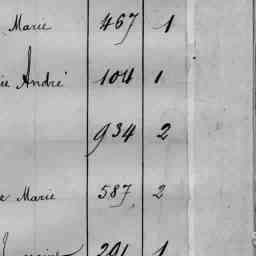 Marie 467 1
André 104 1
934 2
Marie 587 2
291 1